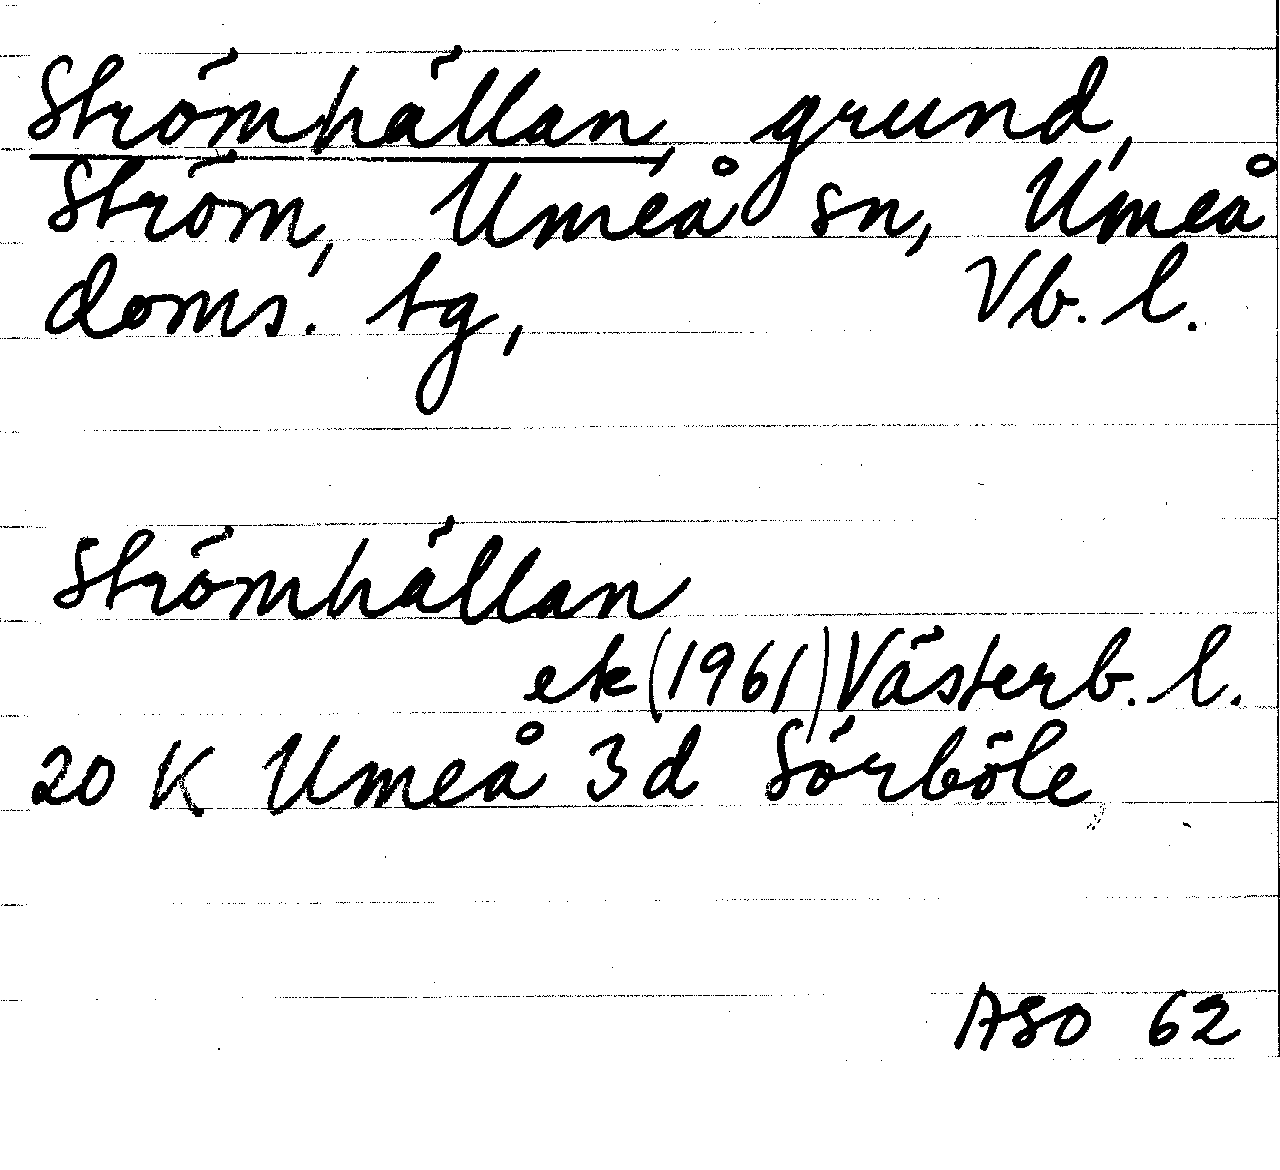 Strömhällan, grund,
Ström, Umeå sn, Umeå
doms. tg, Vb. l.
Strömhällan
ek (1961) Västerb. l.
20 K Umeå 3d Sörböle
ASO 62